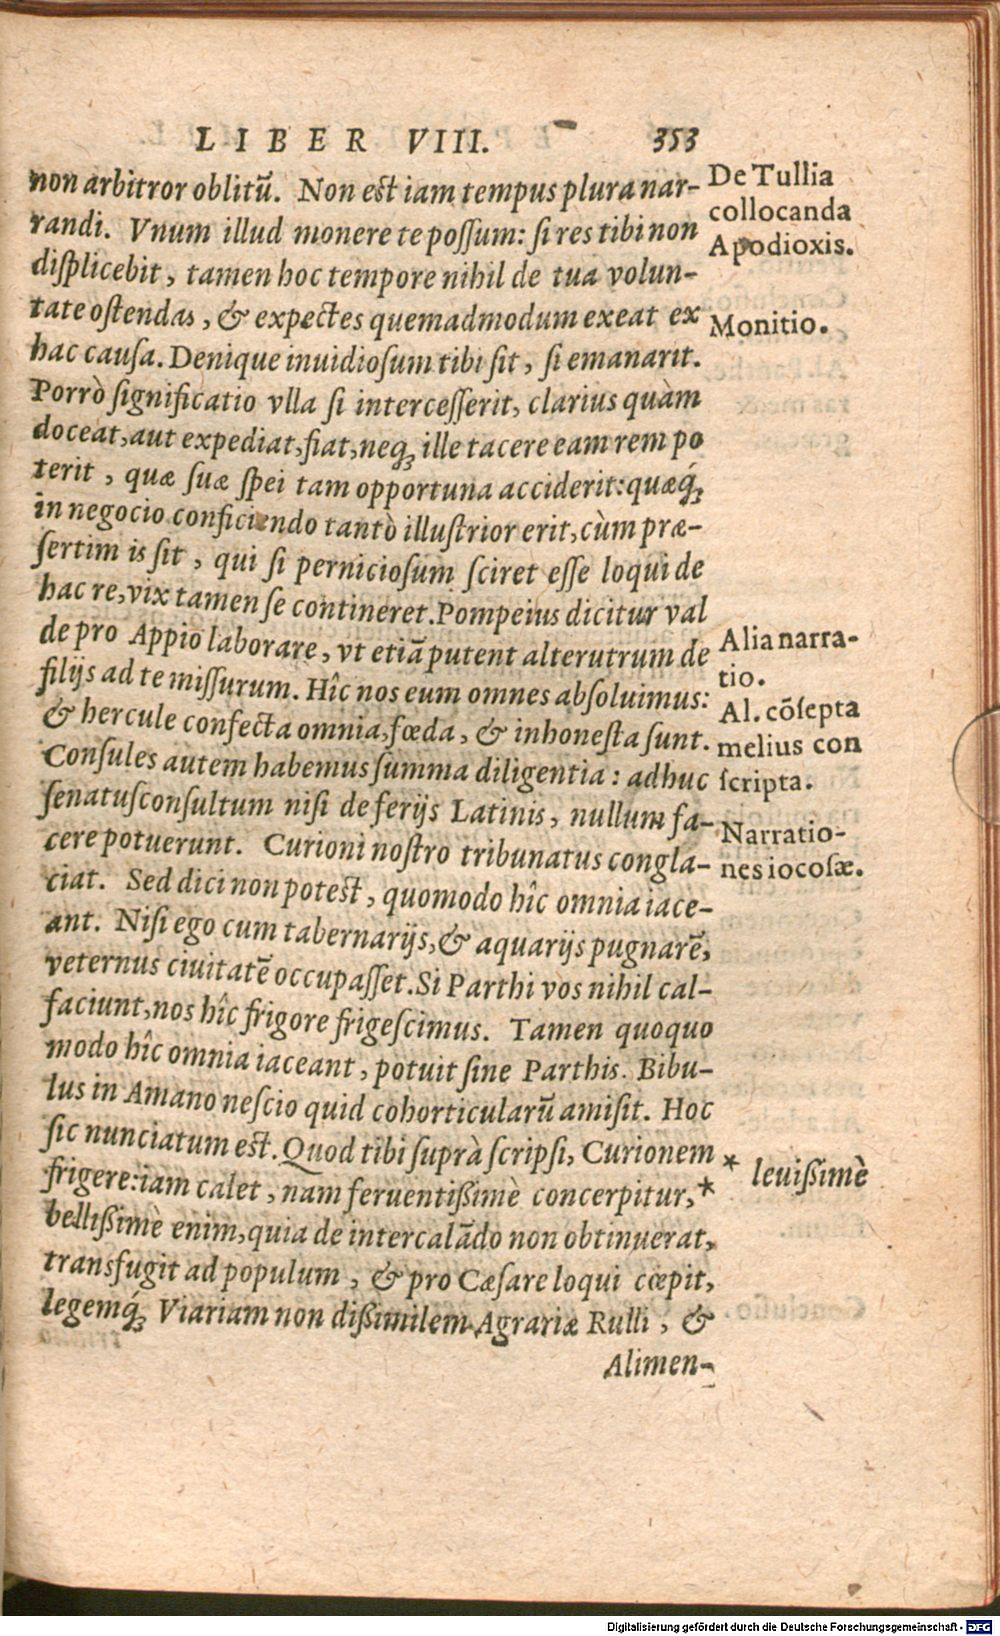 LIBER VIII. 353
non arbitror oblitũ. Non est iam tempus plura nar-
randi. Vnum illud monere te possum: si res tibi non
displicebit, tamen hoc tempore nihil de tua volun-
tate ostendas, & expectes quemadmodum exeat ex
hac causa. Denique inuidiosum tibi sit, si emanarit.
Porrò significatio vlla si intercesserit, clarius quàm
doceat, aut expediat, fiat, neq; ille tacere eam rem po
terit, quæ suæ spei tam opportuna acciderit: quæq́;
in negocio conficiendo tantò illustrior erit, cùm præ-
sertim is sit, qui si perniciosum sciret esse loqui de
hac re, vix tamen se contineret. Pompeius dicitur val
de pro Appio laborare, vt etiã putent alterutrum de
filijs ad te missurum. Hîc nos eum omnes absoluimus:
& hercule confecta omnia, fœda, & inhonesta sunt.
Consules autem habemus summa diligentia: adhuc
senatusconsultum nisi de ferijs Latinis, nullum fa-
cere potuerunt. Curioni nostro tribunatus congla-
ciat. Sed dici non potest, quomodo hîc omnia iace-
ant. Nisi ego cum tabernarijs, & aquarijs pugnarẽ,
veternus ciuitatẽ occupasset. Si Parthi vos nihil cal-
faciunt, nos hîc frigore frigescimus. Tamen quoquo
modo hîc omnia iaceant, potuit sine Parthis. Bibu-
lus in Amano nescio quid cohorticularũ amisit. Hoc
sic nunciatum est. Quod tibi suprà scripsi, Curionem
frigere: iam calet, nam feruentißimè concerpitur, *
bellißimè enim, quia de intercalãdo non obtinuerat,
transfugit ad populum, & pro Cæsare loqui cœpit,
legemq́; Viariam non dißimilem Agrariæ Rulli, &
Alimen-
De Tullia
collocanda
Apodioxis.
Monitio.
Alia narra-
tio.
Al. cõsepta
melius con
scripta.
Narratio-
nes iocosæ.
* levißimè
Digitalisierung gefördert durch die Deutsche Forschungsgemeinschaft - DFG